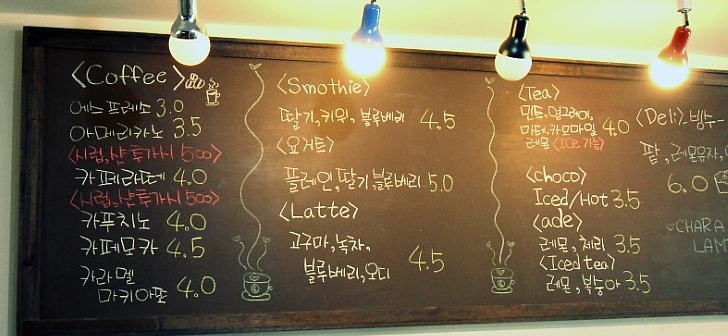 <Coffee>
에스프레소 3.0
아메리카노 3.5
<시럽,샷 추가시 500>
카페라떼 4.0
<시럽,샷 추가시 500>
카푸치노 4.0
카페모카 4.5
카라멜
마키아또 4.0
<Smothie>
딸기,키위,블루베리 4.5
<요거트>
플레인,딸기,블루베리 5.0
<Latte>
고구마,녹차,
블루베리,오디 4.5
<Tea>
민트,얼그레이,
마테,카모마일 4.0
레몬 <ICe 가능>
<choco>
Iced/Hot 3.5
<ade>
레몬,체리 3.5
<Iced tea>
레몬,복숭아 3.5
<Deli> 빙수-
팥,레몬유자,
6.0
CHARA
LAM